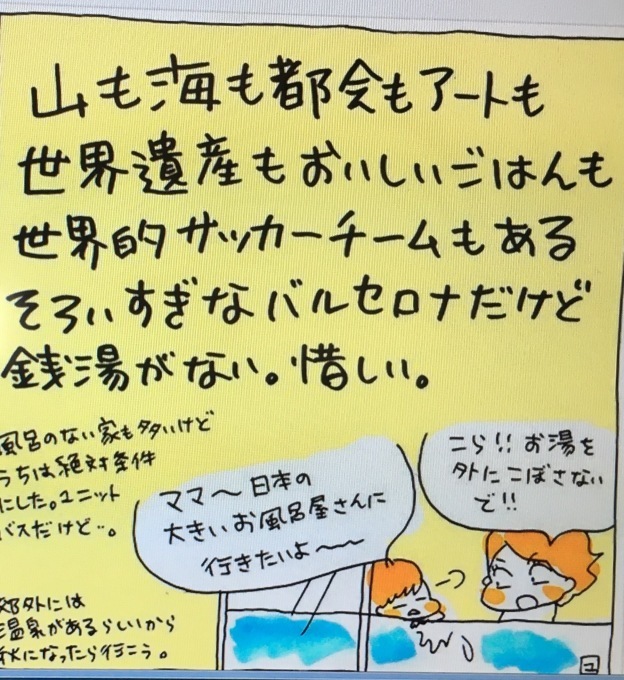 山も海も都会もアートも
世界遺産もおいしいごはんも
世界的サッカーチームもある
そろいすぎなバルセロナだけど
銭湯がない。惜しい。
風呂のない家も多いけど
うちは絶対条件
にした。ユニット
バスだけど‥。
郊外には
温泉があるらしいから
秋になったら行こう。
ママ〜日本の
大きいお風呂屋さんに
行きたいよ〜〜
こら!!お湯を
外にこぼさない
で!!